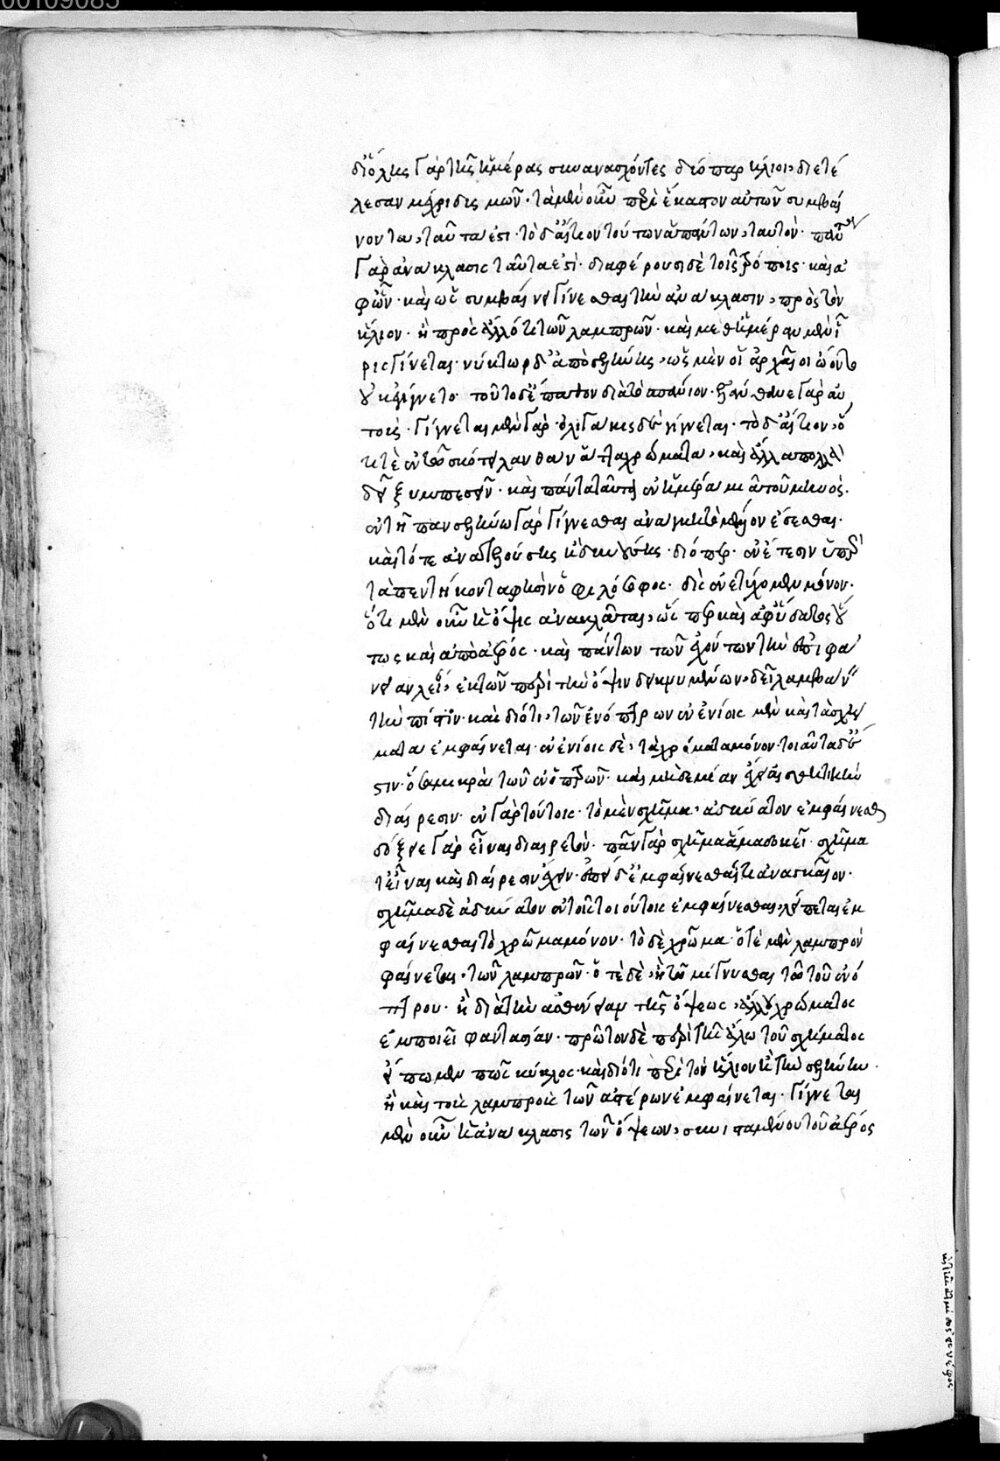 00109085
δι' ὅλης γὰρ τῆς ἡμέρας συνανασχόντες δύο παρήλιοι, διετέ
λεσαν μέχρι δυσμῶν· τὰ μὲν οὖν περὶ ἕκαστον αὐτῶν συμβαί
νοντα, ταῦτά ἐστι· τὸ δ' αἴτιον τούτων ἁπάντων, ταυτόν· πάντα
γὰρ ἀνάκλασις ταῦτα ἐστί· διαφέρουσι δὲ τοῖς τρόποις· καὶ ἀ
φ' ὧν· καὶ ὡς συμβαίνει γίνεσθαι τὴν ἀνάκλασιν, πρὸς τὸν
ἥλιον· ἢ πρὸς ἄλλό τι τῶν λαμπρῶν· καὶ μεθ' ἡμέραν μὲν ἶ
ρις γίνεται· νύκτωρ δ' ἀπὸ σελήνης, ὡς μὲν οἱ ἀρχαῖοι ᾤοντο
οὐκ ἐγίγνετο· τοῦτο δ' ἔπαθον διὰ τὸ σπάνιον· ἐλάνθανε γὰρ αὐ
τούς· γίγνεται μὲν γάρ· ὀλιγάκις δὲ γίγνεται· τὸ δ' αἴτιον, ὅ
τι τὲ ἐν τῷ σκότει λανθάνει τὰ χρώματα, καὶ ἄλλα πολλὰ
δεῖ ξυμπεσεῖν· καὶ πάντα ταῦτα ἐν ἡμέρα μιᾷ τοῦ μηνός·
ἐν τῇ πανσελήνω γὰρ γίγνεσθαι ἀνάγκη τὸ μέλλον ἔσεσθαι·
καὶ τότε ἀνατελλούσης ἢ δυνούσης· διόπερ· ἐν ἔτεσιν ὑπὲρ
τὰ πεντήκοντα φησὶν ὁ φιλόσοφος· δὶς ἐνετύχομεν μόνον·
ὅτι μὲν οὖν ἡ ὄψις ἀνακλᾶται, ὥσπερ καὶ ἀφ' ὕδατος οὕ
τως καὶ ἀπὸ ἀέρος· καὶ πάντων τῶν ἐχόντων τὴν ἐπιφά
νειαν λείαν, ἐκ τῶν περὶ τὴν ὄψιν δεικνυμένων, δεῖ λαμβάνειν
τὴν πίστιν· καὶ διότι, τῶν ἐνόπτρων ἐν ἐνίοις μὲν καὶ τὰ σχή
ματα ἐμφαίνεται· ἐν ἐνίοις δὲ, τὰ χρώματα μόνον· τοιαῦτα δέ ἐ
στιν· ὅσα μικρὰ τῶν ἐνόπτρων· καὶ μηδεμίαν ἔχει αἰσθητικὴν
διαίρεσιν· ἐν γὰρ τούτοις· τὸ μὲν σχῆμα, ἀδύνατον ἐμφαίνεσθαι
δόξει γὰρ εἶναι διαιρετόν· πᾶν γὰρ σχῆμα ἅμα δοκεῖ· σχῆμά
τ' εἶναι καὶ διαίρεσιν ἔχειν· ἐπεὶ δ' ἐμφαίνεσθαί τι ἀναγκαῖον·
σχῆμα δὲ ἀδύνατον ἐν τοῖς τοιούτοις ἐμφαίνεσθαι, λείπεται ἐμ
φαίνεσθαι τὸ χρῶμα μόνον· τὸ δὲ χρῶμα· ὁτὲ μὲν λαμπρὸν
φαίνεται, τῶν λαμπρῶν· ὁτὲ δὲ, ἢ τῷ μίγνυσθαι τῷ τοῦ ἐνό
πτρου· ἢ διὰ τὴν ἀσθένειαν τῆς ὄψεως, ἄλλου χρώματος
ἐμποιεῖ φαντασίαν· πρῶτον δὲ περὶ τῆς ἅλω τοῦ σχήματος
εἴπωμεν πῶς κύκλος· καὶ διότι περὶ τὸν ἥλιον ἢ τὴν σελήνην·
ἢ καὶ τοῖς λαμπροῖς τῶν ἀστέρων ἐμφαίνεται· γίγνεται
μὲν οὖν ἡ ἀνάκλασις τῶν ὄψεων, συνισταμένου τοῦ ἀέρος